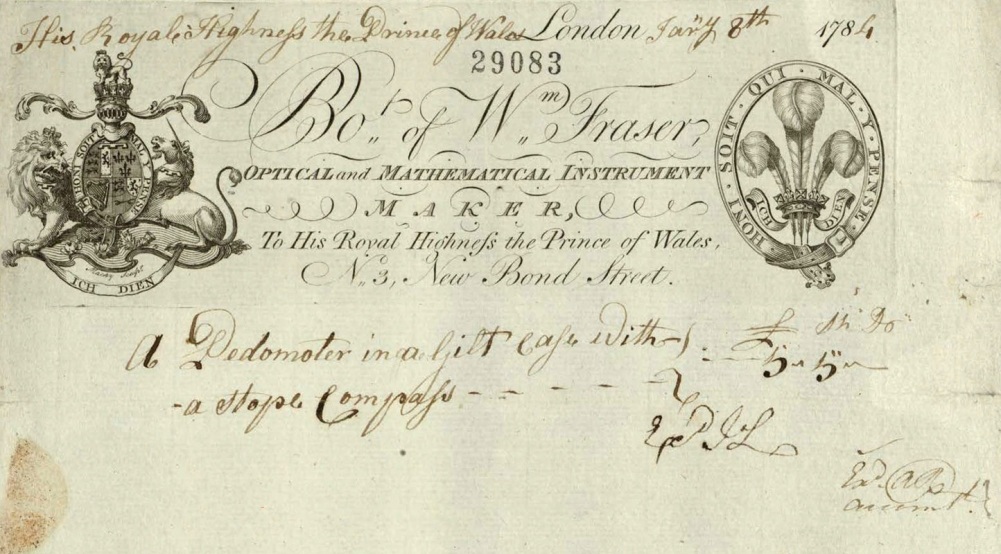 His Royal Highneſs the Prince of Wales London Janry 8th 1784
29083
Bot. of Wm. Fraser,
OPTICAL and MATHEMATICAL INSTRUMENT
MAKER,
To His Royal Highneſs the Prince of Wales,
No. 3, New Bond Street.
HONI SOIT QUI MAL Y PENSE
ICH DIEN
HONI · SOIT · QUI · MAL · Y · PENSE
ICH DIEN
A Pedomoter in a Gilt Caſe with
£
5 " 5 "
a Stope Compaſs
Exd
Exd.